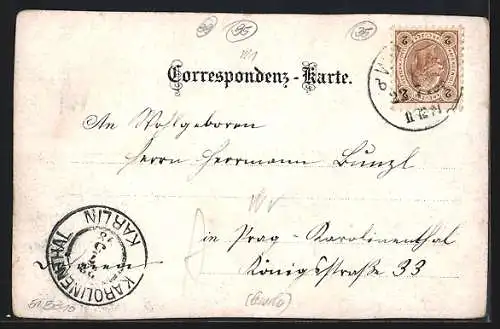 Correspondenz-Karte.
An Wohlgeboren
Herrn Herrmann Bunzl
in Prag-Karolinenthal
Königsstraße 33
KAROLINENTHAL
KARLIN
2 2